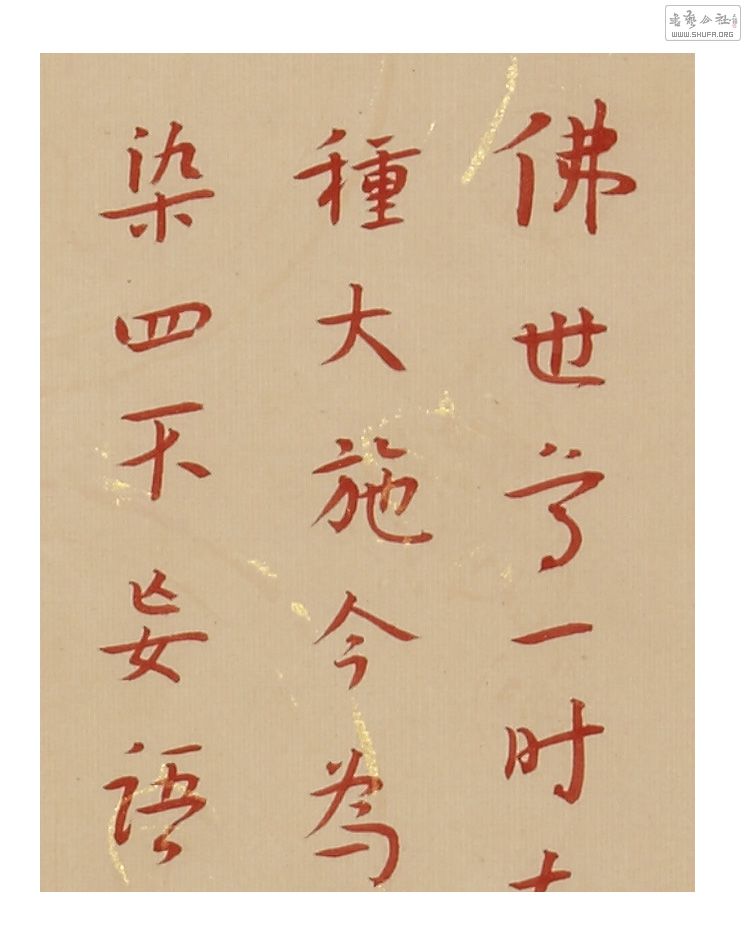 書藝公社
WWW.SHUFA.ORG
佛世尊一时
種大施今為
染四不妄語